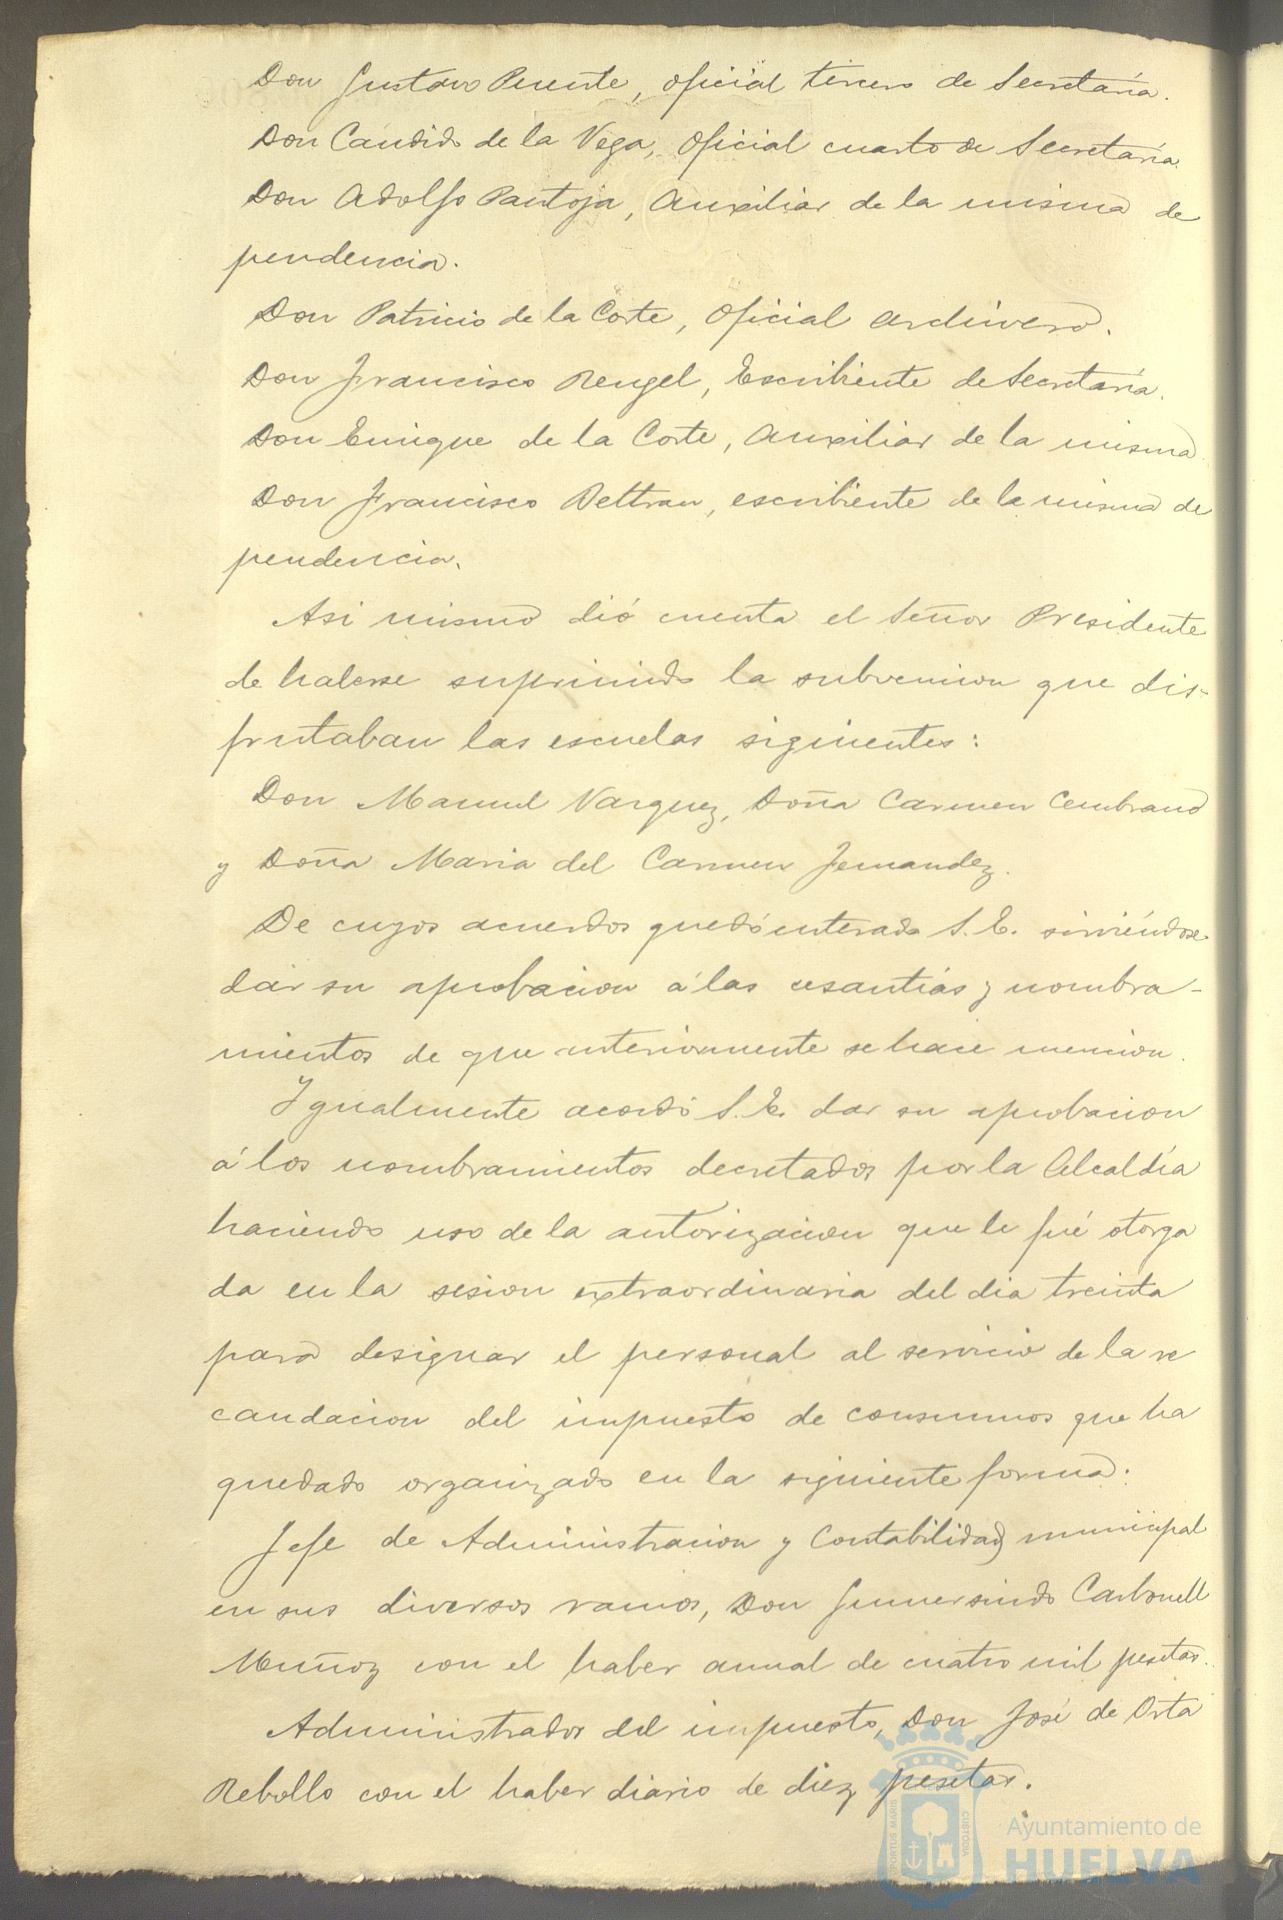 Don Gustavo Perente, oficial tercero de Secretaría.
Don Candido de la Vega, Oficial cuarto de Secretaría.
Don Adolfo Pantoja, Auxiliar de la misma de
pendencia.
Don Patricio de la Corte, Oficial archivero.
Don Francisco Rengel, Escribiente de Secretaría.
Don Enrique de la Corte, Auxiliar de la misma
Don Francisco Beltran, escribiente de la misma de
pendencia.
Asi mismo dió cuenta el Señor Presidente
de haberse suprimido la subvencion que dis-
frutaban las escuelas siguientes:
Don Manuel Vazquez, Doña Carmen Cembrano
y Doña Maria del Carmen Fernandez.
De cuyos acuerdos quedó enterada S. E. sirviéndose
dar su aprobacion á las cesantías y nombra-
mientos de que anteriormente se hace mencion.
Igualmente acordó S. E. dar su aprobacion
á los nombramientos decretados por la Alcaldía
haciendo uso de la autorizacion que le fué otorga
da en la sesion extraordinaria del dia treinta
para designar el personal al servicio de la re
caudacion del impuesto de consumos que ha
quedado organizado en la siguiente forma:
Jefe de Administracion y Contabilidad municipal
en sus diversos ramos, Don Gumersindo Carbonell
Muñoz con el haber anual de cuatro mil pesetas.
Administrador del impuesto, Don José de Orta
Rebollo con el haber diario de diez pesetas.
PORTUS MARIS
CUSTODIA
Ayuntamiento de
HUELVA